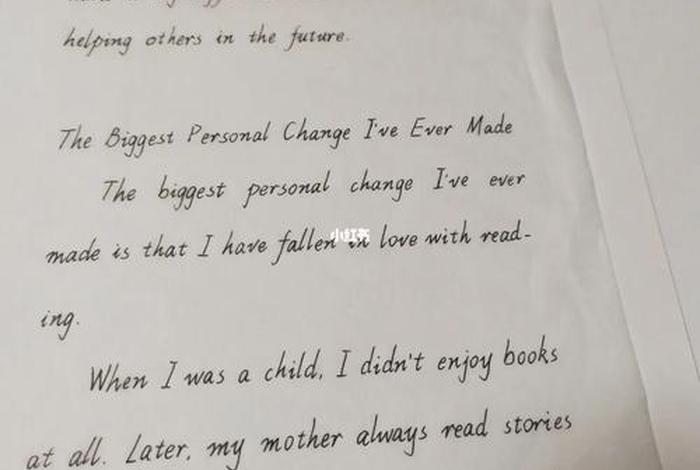 helping others in the future.
The Biggest Personal Change I've Ever Made
The biggest personal change I've ever
made is that I have fallen in love with read-
小红书
ing.
When I was a child, I didn't enjoy books
at all. Later, my mother always read stories